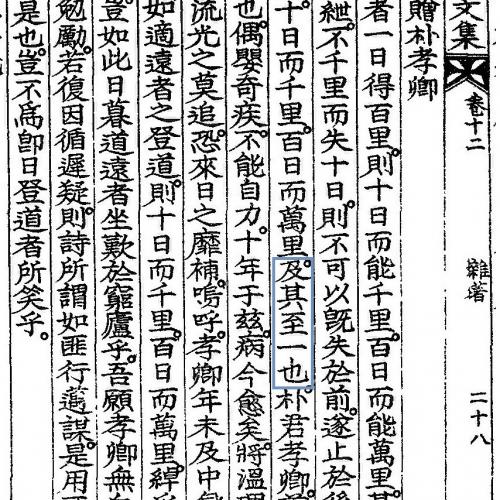 文集 卷十二 雜著 二十八
贈朴孝卿
者一日得百里。則十日而能千里。百日而能萬里。
紲。不千里而失十日。則不可以旣失於前。遂止於後
十日而千里。百日而萬里。及其至一也。朴君孝卿
也。偶嬰奇疾。不能自力。十年于玆。病今愈矣。將溫理
流光之莫追。恐來日之靡補。嗚呼。孝卿年未及中
如適遠者之登道。則十日而千里。百日而萬里。綽
豈如此日暮道遠者坐歎於窮廬乎。吾願孝卿無
勉勵。若復因循遲疑。則詩所謂如匪行邁謀。是用不
是也。豈不爲卽日登道者所笑乎。